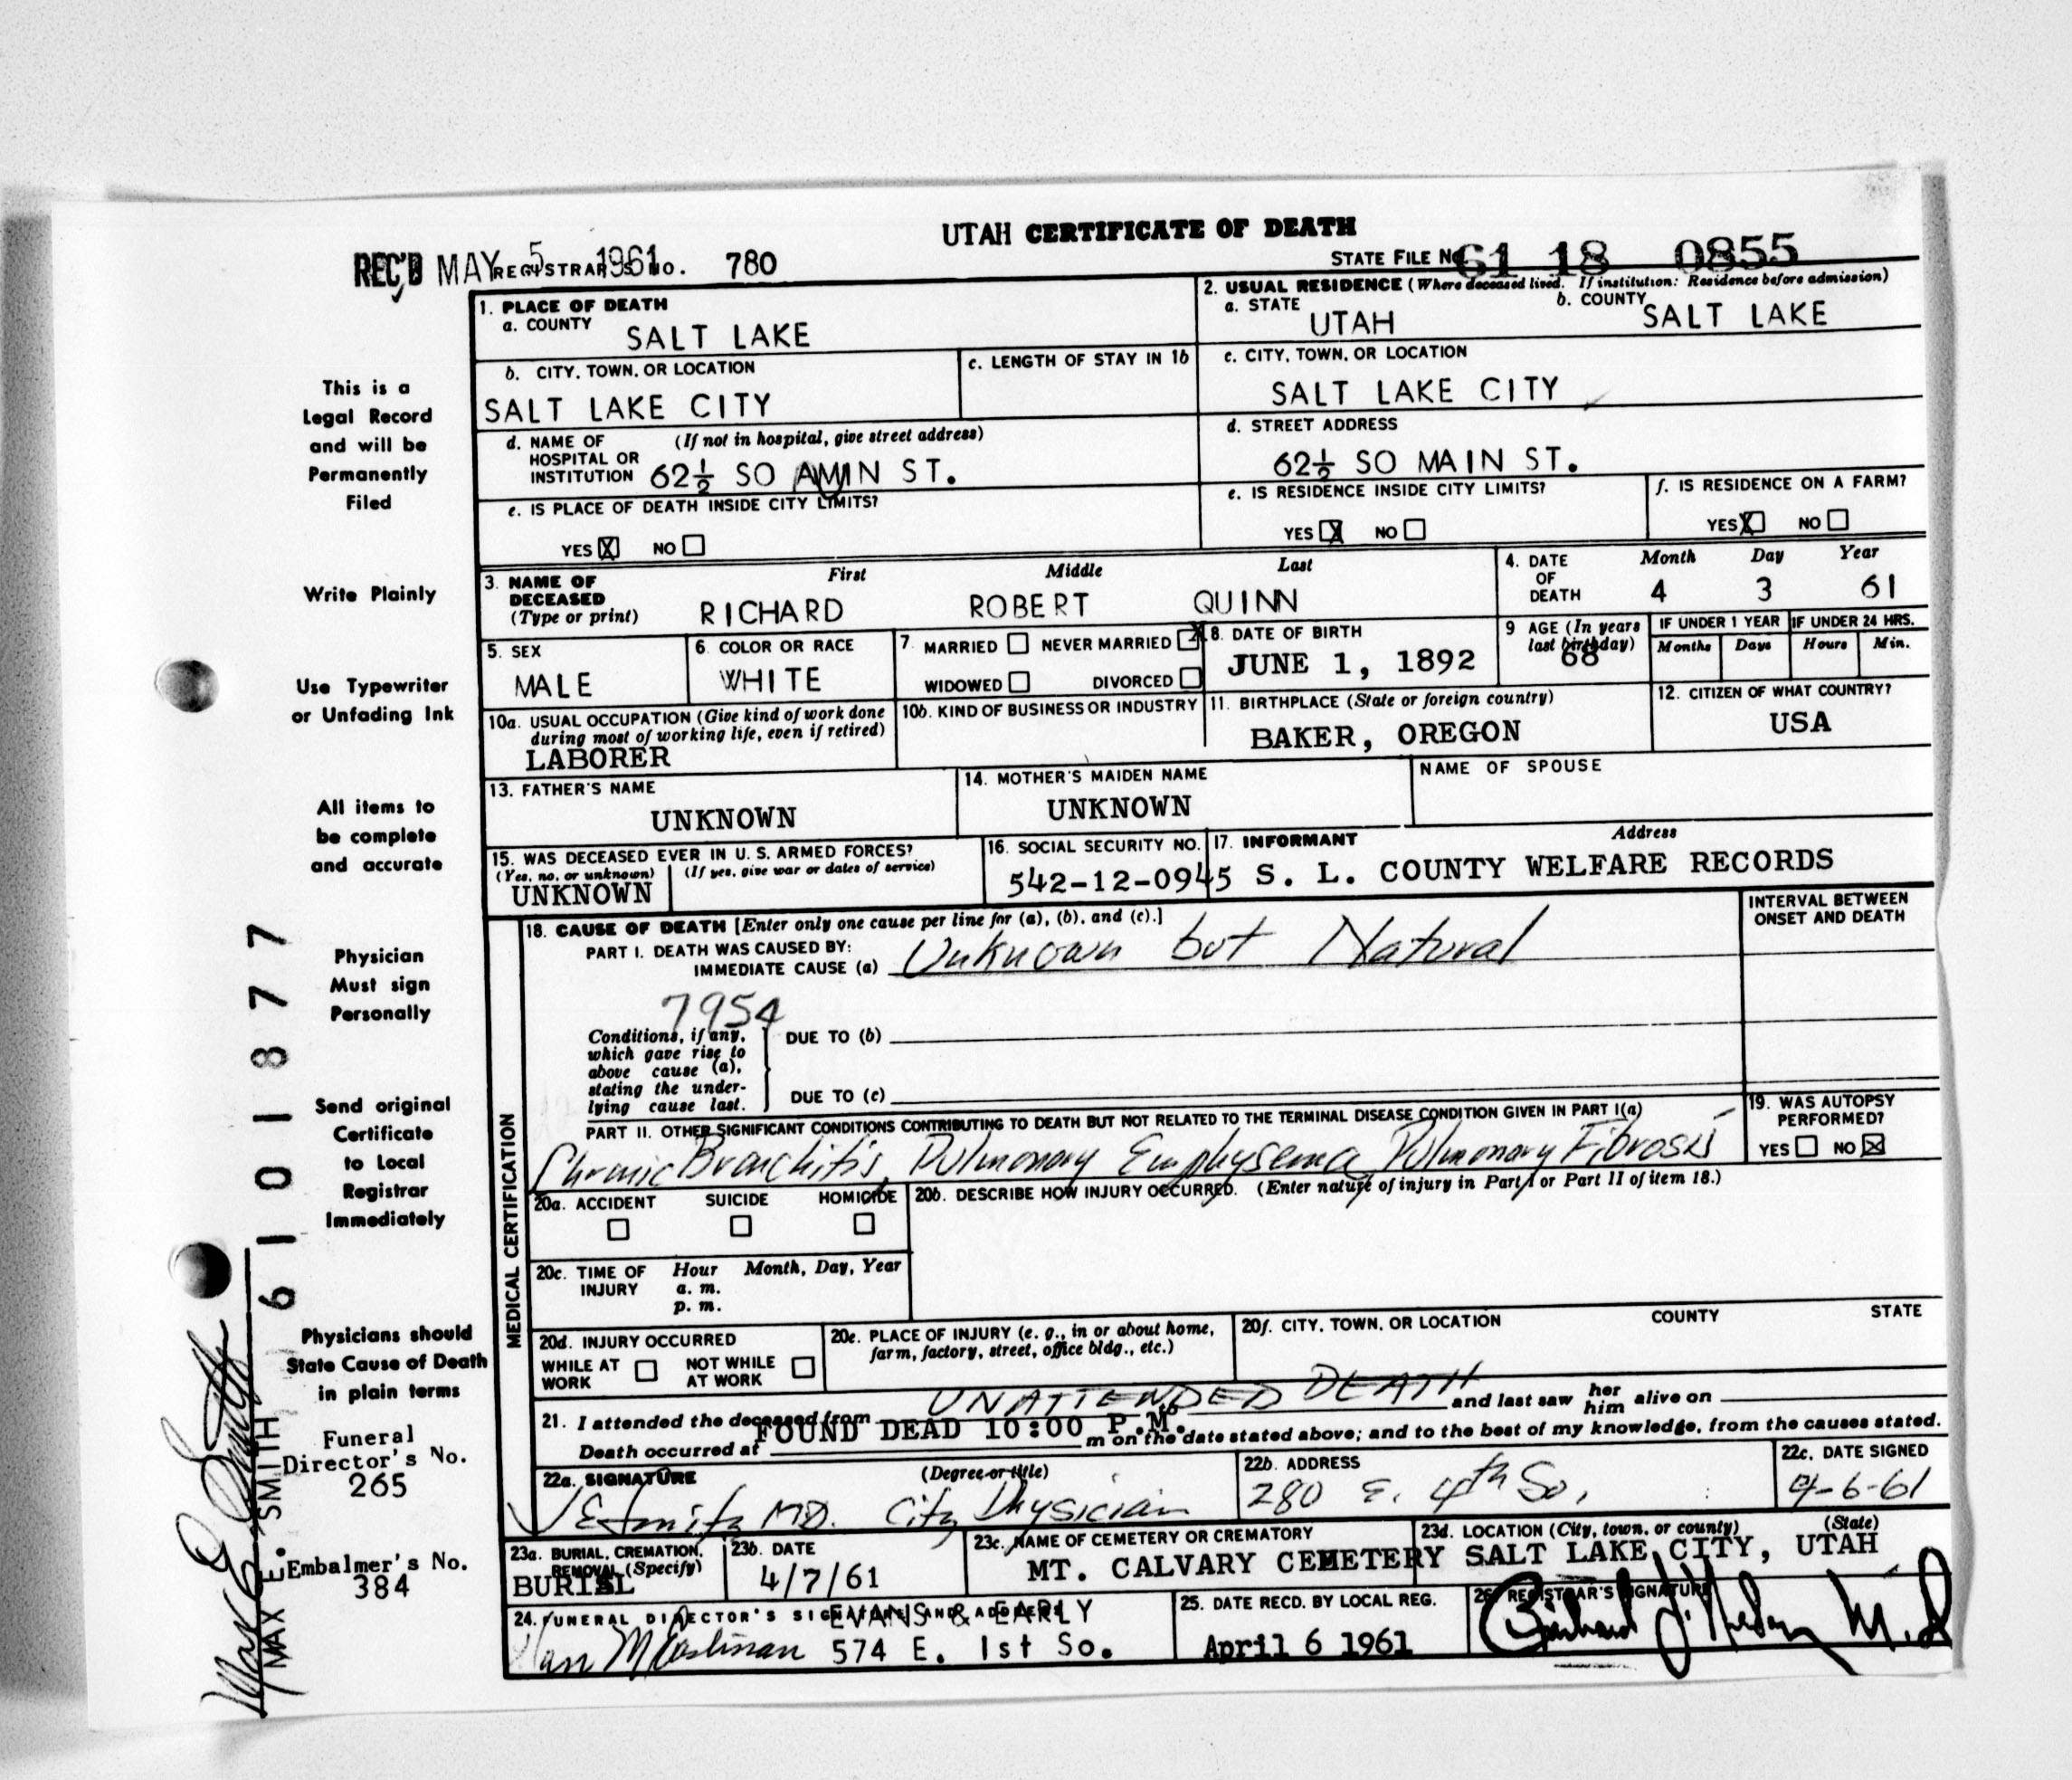 UTAH CERTIFICATE OF DEATH
REC'D MAY 5 1961 REGISTRAR'S NO. 780
STATE FILE NO. 61 18 0855
1. PLACE OF DEATH
a. COUNTY SALT LAKE
b. CITY, TOWN, OR LOCATION
SALT LAKE CITY
c. LENGTH OF STAY IN 1b
d. NAME OF HOSPITAL OR INSTITUTION (If not in hospital, give street address)
62½ SO AMIN ST.
e. IS PLACE OF DEATH INSIDE CITY LIMITS?
YES ☒ NO ☐
2. USUAL RESIDENCE (Where deceased lived. If institution: Residence before admission)
a. STATE UTAH
b. COUNTY SALT LAKE
c. CITY, TOWN, OR LOCATION
SALT LAKE CITY
d. STREET ADDRESS
62½ SO MAIN ST.
e. IS RESIDENCE INSIDE CITY LIMITS?
YES ☒ NO ☐
f. IS RESIDENCE ON A FARM?
YES ☒ NO ☐
3. NAME OF DECEASED (Type or print)
First Middle Last
RICHARD ROBERT QUINN
4. DATE OF DEATH
Month Day Year
4 3 61
5. SEX
MALE
6. COLOR OR RACE
WHITE
7. MARRIED ☐ NEVER MARRIED ☒
WIDOWED ☐ DIVORCED ☐
8. DATE OF BIRTH
JUNE 1, 1892
9 AGE (In years last birthday)
68
IF UNDER 1 YEAR
Months Days
IF UNDER 24 HRS.
Hours Min.
10a. USUAL OCCUPATION (Give kind of work done during most of working life, even if retired)
LABORER
10b. KIND OF BUSINESS OR INDUSTRY
11. BIRTHPLACE (State or foreign country)
BAKER, OREGON
12. CITIZEN OF WHAT COUNTRY?
USA
13. FATHER'S NAME
UNKNOWN
14. MOTHER'S MAIDEN NAME
UNKNOWN
NAME OF SPOUSE
15. WAS DECEASED EVER IN U. S. ARMED FORCES?
(Yes, no, or unknown) (If yes, give war or dates of service)
UNKNOWN
16. SOCIAL SECURITY NO.
542-12-0945
17. INFORMANT Address
S. L. COUNTY WELFARE RECORDS
MEDICAL CERTIFICATION
18. CAUSE OF DEATH [Enter only one cause per line for (a), (b), and (c).]
INTERVAL BETWEEN ONSET AND DEATH
PART I. DEATH WAS CAUSED BY:
IMMEDIATE CAUSE (a) Unknown but Natural
7954
Conditions, if any, which gave rise to above cause (a), stating the underlying cause last.
DUE TO (b)
DUE TO (c)
PART II. OTHER SIGNIFICANT CONDITIONS CONTRIBUTING TO DEATH BUT NOT RELATED TO THE TERMINAL DISEASE CONDITION GIVEN IN PART I(a)
Chronic Bronchitis, Pulmonary Emphysema, Pulmonary Fibrosis
19. WAS AUTOPSY PERFORMED?
YES ☐ NO ☒
20a. ACCIDENT SUICIDE HOMICIDE
☐ ☐ ☐
20b. DESCRIBE HOW INJURY OCCURRED. (Enter nature of injury in Part I or Part II of item 18.)
20c. TIME OF INJURY Hour Month, Day, Year
a. m.
p. m.
20d. INJURY OCCURRED
WHILE AT WORK ☐ NOT WHILE AT WORK ☐
20e. PLACE OF INJURY (e. g., in or about home, farm, factory, street, office bldg., etc.)
20f. CITY, TOWN, OR LOCATION COUNTY STATE
21. I attended the deceased from UNATTENDED DEATH to and last saw her him alive on
Death occurred at FOUND DEAD 10:00 P.M. m on the date stated above; and to the best of my knowledge, from the causes stated.
22a. SIGNATURE (Degree or title)
MD. City Physician
22b. ADDRESS
280 E. 4th So.
22c. DATE SIGNED
4-6-61
23a. BURIAL, CREMATION, REMOVAL (Specify)
BURIAL
23b. DATE
4/7/61
23c. NAME OF CEMETERY OR CREMATORY
MT. CALVARY CEMETERY
23d. LOCATION (City, town, or county) (State)
SALT LAKE CITY, UTAH
24. FUNERAL DIRECTOR'S SIGNATURE AND ADDRESS
EVANS & EARLY
574 E. 1st So.
25. DATE RECD. BY LOCAL REG.
April 6 1961
26. REGISTRAR'S SIGNATURE
This is a
Legal Record
and will be
Permanently
Filed
Write Plainly
Use Typewriter
or Unfading Ink
All items to
be complete
and accurate
Physician
Must sign
Personally
Send original
Certificate
to Local
Registrar
Immediately
Physicians should
State Cause of Death
in plain terms
Funeral
Director's No.
265
Embalmer's No.
384
6101877
Max E Smith
MAX E. SMITH